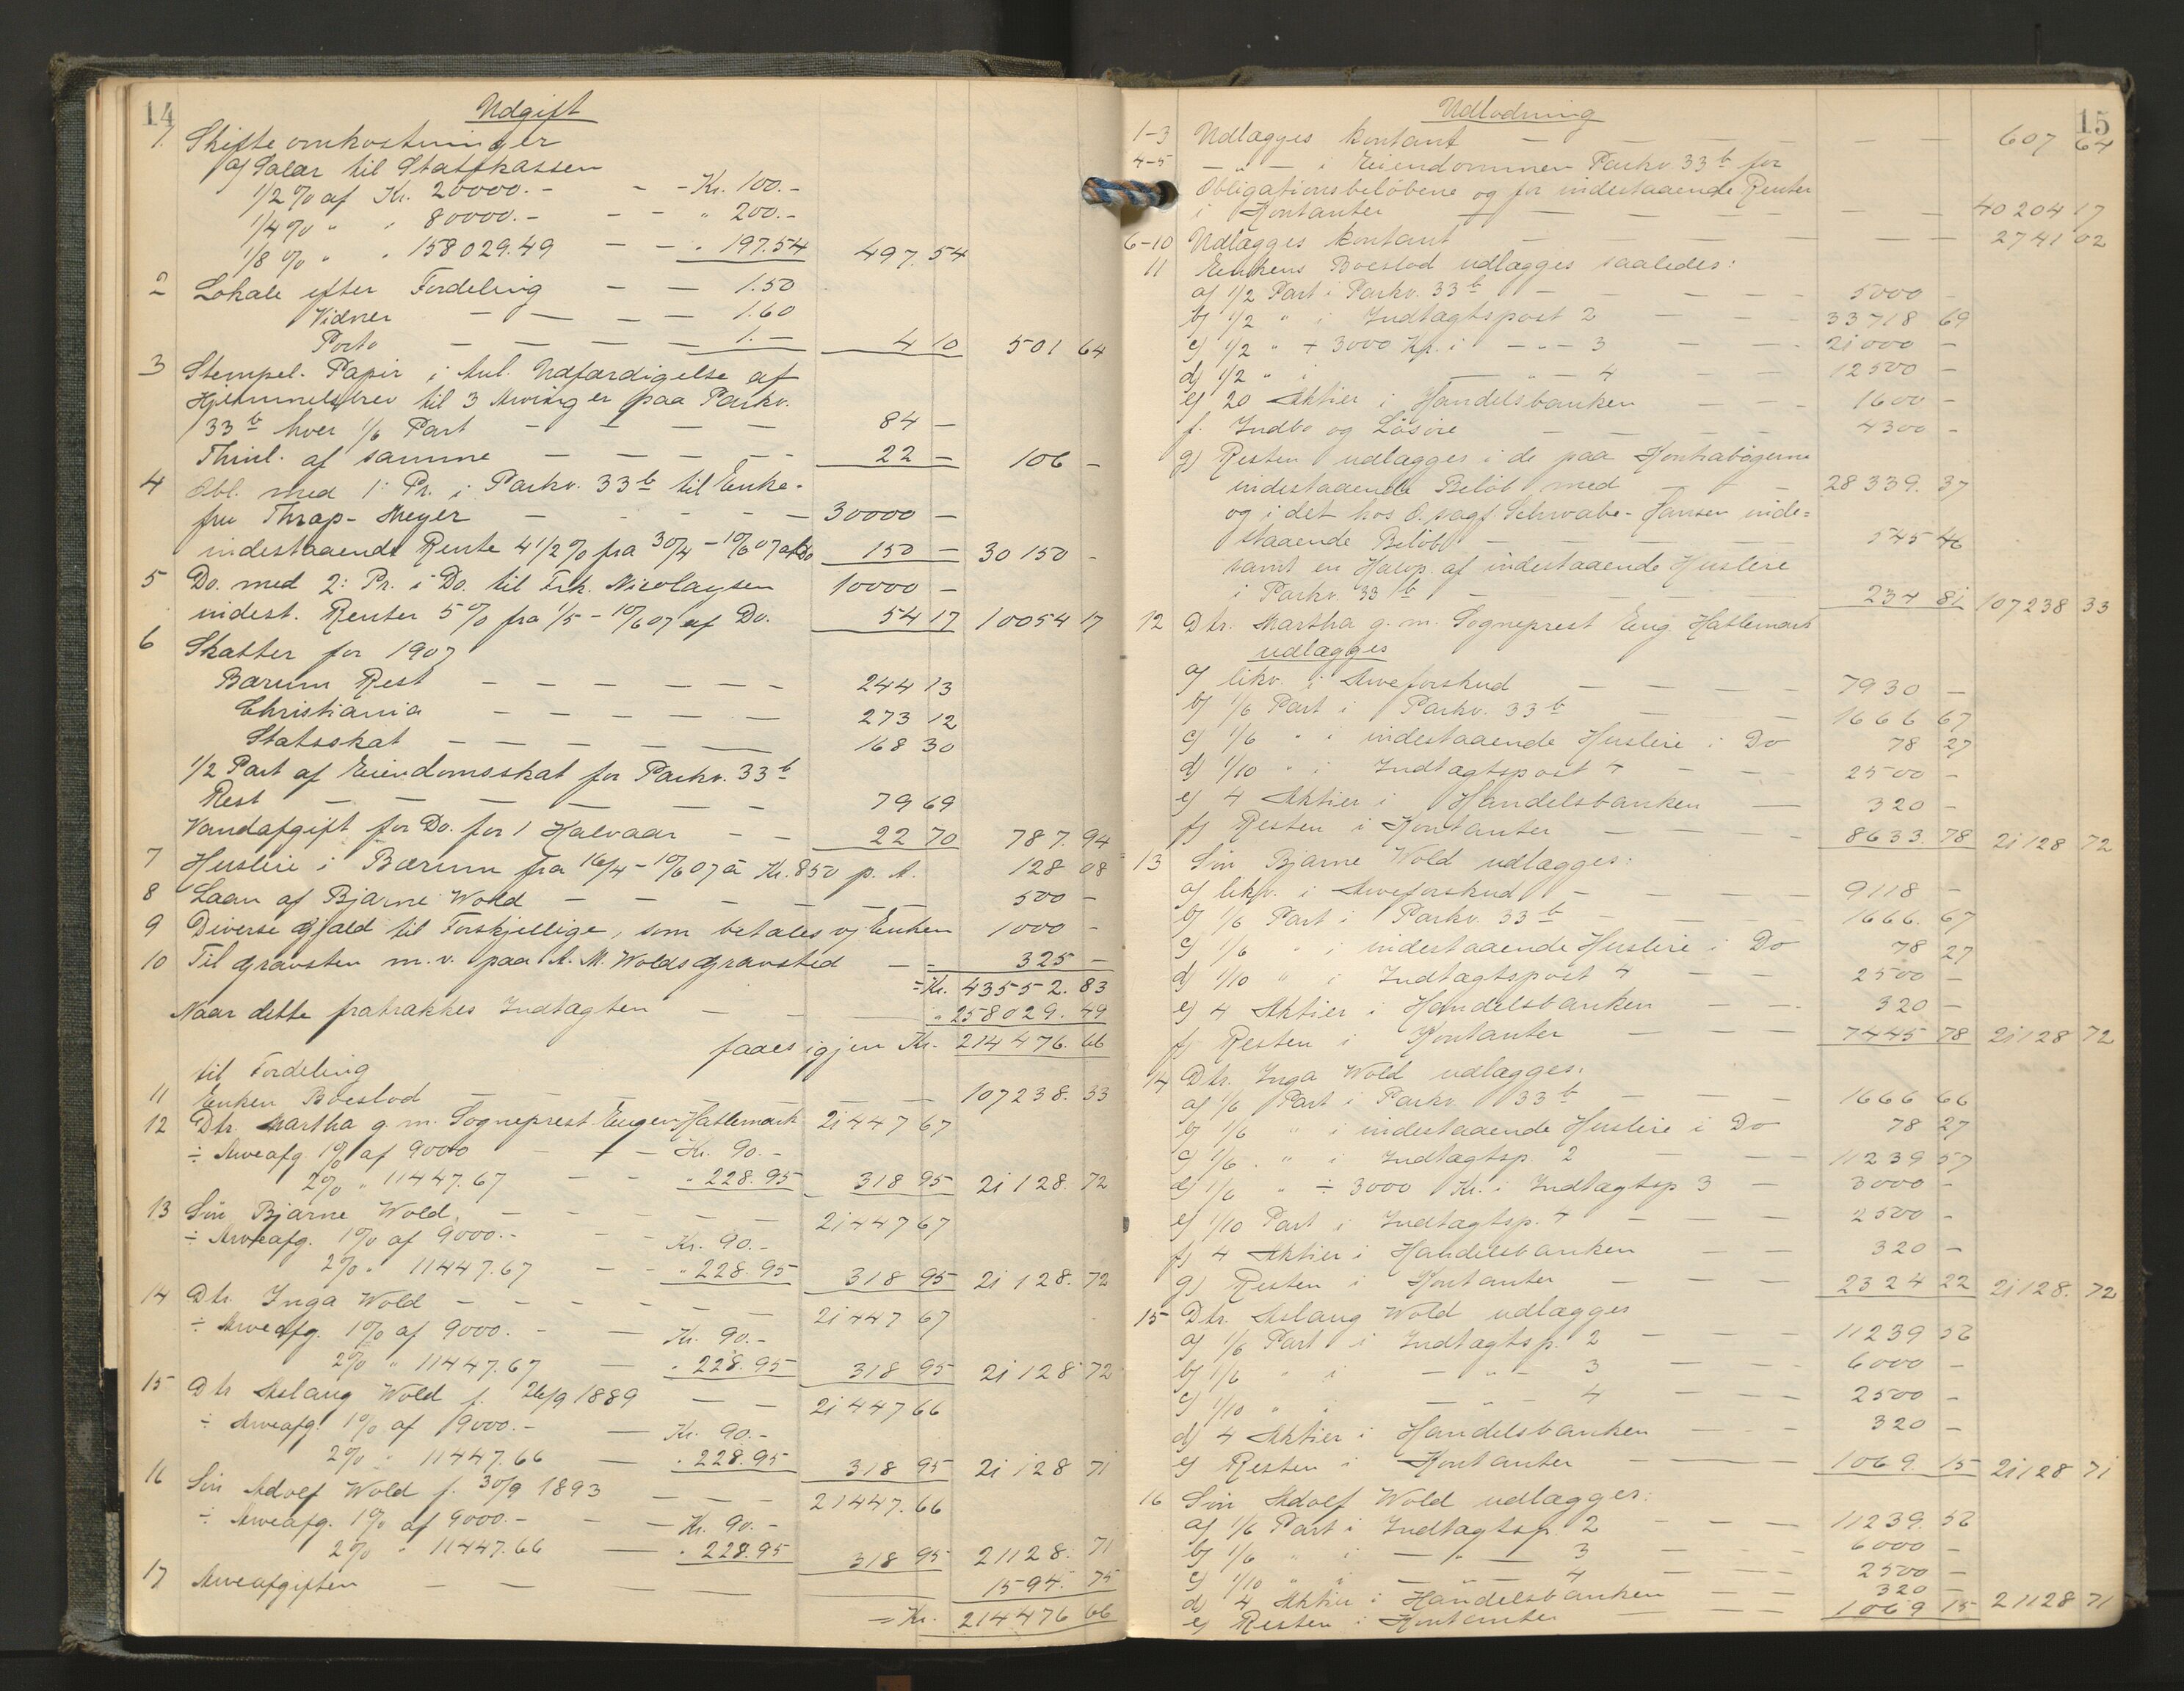 14
Udgift
1. Skifteomkostninger
a) Salær til Statskassen
1/2 % af Kr. 20000.- - - Kr. 100.-
1/4 % " " 80000.- - - " 200.-
1/8 % " " 158029.49 - - " 197.54 497.54
2 Lokale efter Fordeling - - 1.50
Vidner - - - - 1.60
Porto - - - - 1.- 4 10 501 64
3 Stempel. Papir i Anl. Udfærdigelse af
Hjemmelsbrev til 3 Arvinger paa Parkv.
33 b hver 1/6 Part - - - - 84 -
Thinl. af samme - - - - - 22 - 106 -
4 Obl. med 1: Pr. i Parkv. 33 b til Enke-
fru Thrap-Meyer - - - - - 30000 -
indestaaende Rente 4 1/2 % fra 30/4 - 10/6 07 af Do 150 - 30 150 -
5 Do. med 2: Pr. i Do. til Frk. Nicolaysen 10000 -
indest. Renter 5 % fra 1/5 - 10/6 07 af Do. 54 17 10054 17
6 Skatter for 1907
Bærum Rest - - - - - - 244 13
Christiania - - - - - 273 12
Statsskat - - - - - 168 30
1/2 Part af Eiendomsskat for Parkv. 33 b
Rest - - - - - - 79 69
Vandafgift for Do. for 1 Halvaar - - 22 70 787.94
7 Husleie i Bærum fra 16/4 - 10/6 07 à Kr. 850 p. A. 128 08
8 Laan af Bjarne Wold - - - - - - 500 -
9 Diverse Gjæld til Forskjellige, som betales af Enken 1000 -
10 Til Gravsten m. v. paa A. M. Wolds Gravsted - - 325 -
= Kr. 43552.83
Naar dette fratrækkes Indtægten - - - " 258029.49
faaes igjen Kr. 214476.66
til Fordeling
11 Enken Boeslod - - - - - - 107238.33
12 Dtr. Martha g. m. Sogneprest Eugen Hatlemark 21447 67
÷ Arveafg. 1 % af 9000 - - - Kr. 90.-
2 % " 11447.67 - - " 228.95 318 95 21128.72
13 Søn Bjarne Wold. - - - - - 21447 67
÷ Arveafg. 1 % af 9000.- - - Kr. 90.-
2 % " 11447.67 - - " 228.95 318 95 21128.72
14 Dtr. Inga Wold - - - - - - - 21447 67
÷ Arveafg. 1 % af 9000.- - Kr. 90.-
2 % " 11447.67 - " 228.95 318 95 21128 72
15 Dtr Aslaug Wold f. 26/9 1889 - - 21447 66
÷ Arveafg. 1 % af 9000.- - Kr. 90.-
2 % " 11447.66 - " 228.95 318 95 21128 71
16 Søn Adolf Wold f. 30/9 1893 - - - 21447.66
÷ Arveafg. 1 % af 9000.- - - Kr. 90.-
2 % " 11447.66 - " 228.95 318 95 21128.71
17 Arveafgiften - - - - - 1594.75
= Kr. 214476 66
15
Udlodning
1-3 Udlægges kontant - - - - - - 607 64
4-5 - " - i Eiendommen Parkv. 33 b for
Obligationsbeløbene og for indestaaende Renter
i Kontanter - - - - - - 40204 17
6-10 Udlægges kontant - - - - - - 2741 02
11 Enkens Boeslod udlægges saaledes:
a) 1/2 Part i Parkv. 33 b - - - - 5000 -
b) 1/2 " i Indtægtspost 2 - - - 33718 69
c) 1/2 " + 3000 Kr. i - " - 3 - - 21000 -
d) 1/2 " i - " - 4 - - 12500 -
e) 20 Aktier i Handelsbanken - - - 1600 -
f. Indbo og Løsøre - - - 4300 -
g) Resten udlægges i de paa Kontrabøgerne
indestaaende Beløb med - - - 28339.37
og i det hos O. sagf. Schwabe-Hansen inde=
staaende Beløb - - - - 545 46
samt en Halvp. af indestaaende Husleie
i Parkv. 33 b - - - - 234 81 107238 33
12 Dtr. Martha g. m. Sogneprest Eug. Hatlemark
udlægges
a) likv. i Arveforskud - - - - 7930 -
b) 1/6 Part i Parkv. 33 b - - 1666 67
c) 1/6 " i indestaaende Husleie i Do 78 27
d) 1/10 " i Indtægtspost 4 - - - 2500 -
e) 4 Aktier i Handelsbanken - 320 -
f) Resten i Kontanter - - - - 8633.78 21128 72
13 Søn Bjarne Wold udlægges:
a) likv. i Arveforskud - - - - 9118 -
b) 1/6 Part i Parkv. 33 b - - - 1666.67
c) 1/6 " i indestaaende Husleie i Do - 78 27
d) 1/10 " i Indtægtspost 4 - - 2500 -
e) 4 Aktier i Handelsbanken - - 320 -
f) Resten i Kontanter - - - 7445 78 21128 72
14 Dtr. Inga Wold udlægges:
a) 1/6 Part i Parkv. 33 b - - - 1666 66
b) 1/6 " i indestaaende Husleie i Do 78 27
c) 1/6 " i Indtægtsp. 2 - - - 11239 57
d) 1/6 " ÷ 3000 Kr. i Indtægtsp 3 - 3000 -
e) 1/10 Part i Indtægtsp. 4 - - - 2500 -
f) 4 Aktier i Handelsbanken - - 320 -
g) Resten i Kontanter - - - 2324 22 21128.72
15 Dtr. Aslaug Wold udlægges
a) 1/6 Part i Indtægtsp. 2 - - - 11239 56
b) 1/6 " i - " - 3 - - 6000 -
c) 1/10 " " - " - 4 - - - 2500 -
d) 4 Aktier i Handelsbanken - - - 320 -
e) Resten i Kontanter - - - 1069.15 21128 71
16 Søn Adolf Wold udlægges:
a) 1/6 Part i Indtægtsp. 2 - - - 11239.56
b) 1/6 " i - " - 3 - - 6000 -
c) 1/10 " " - " - 4 - - 2500 -
d) 4 Aktier i Handelsbanken - - 320 -
e) Resten i Kontanter - - 1069 15 21128 71